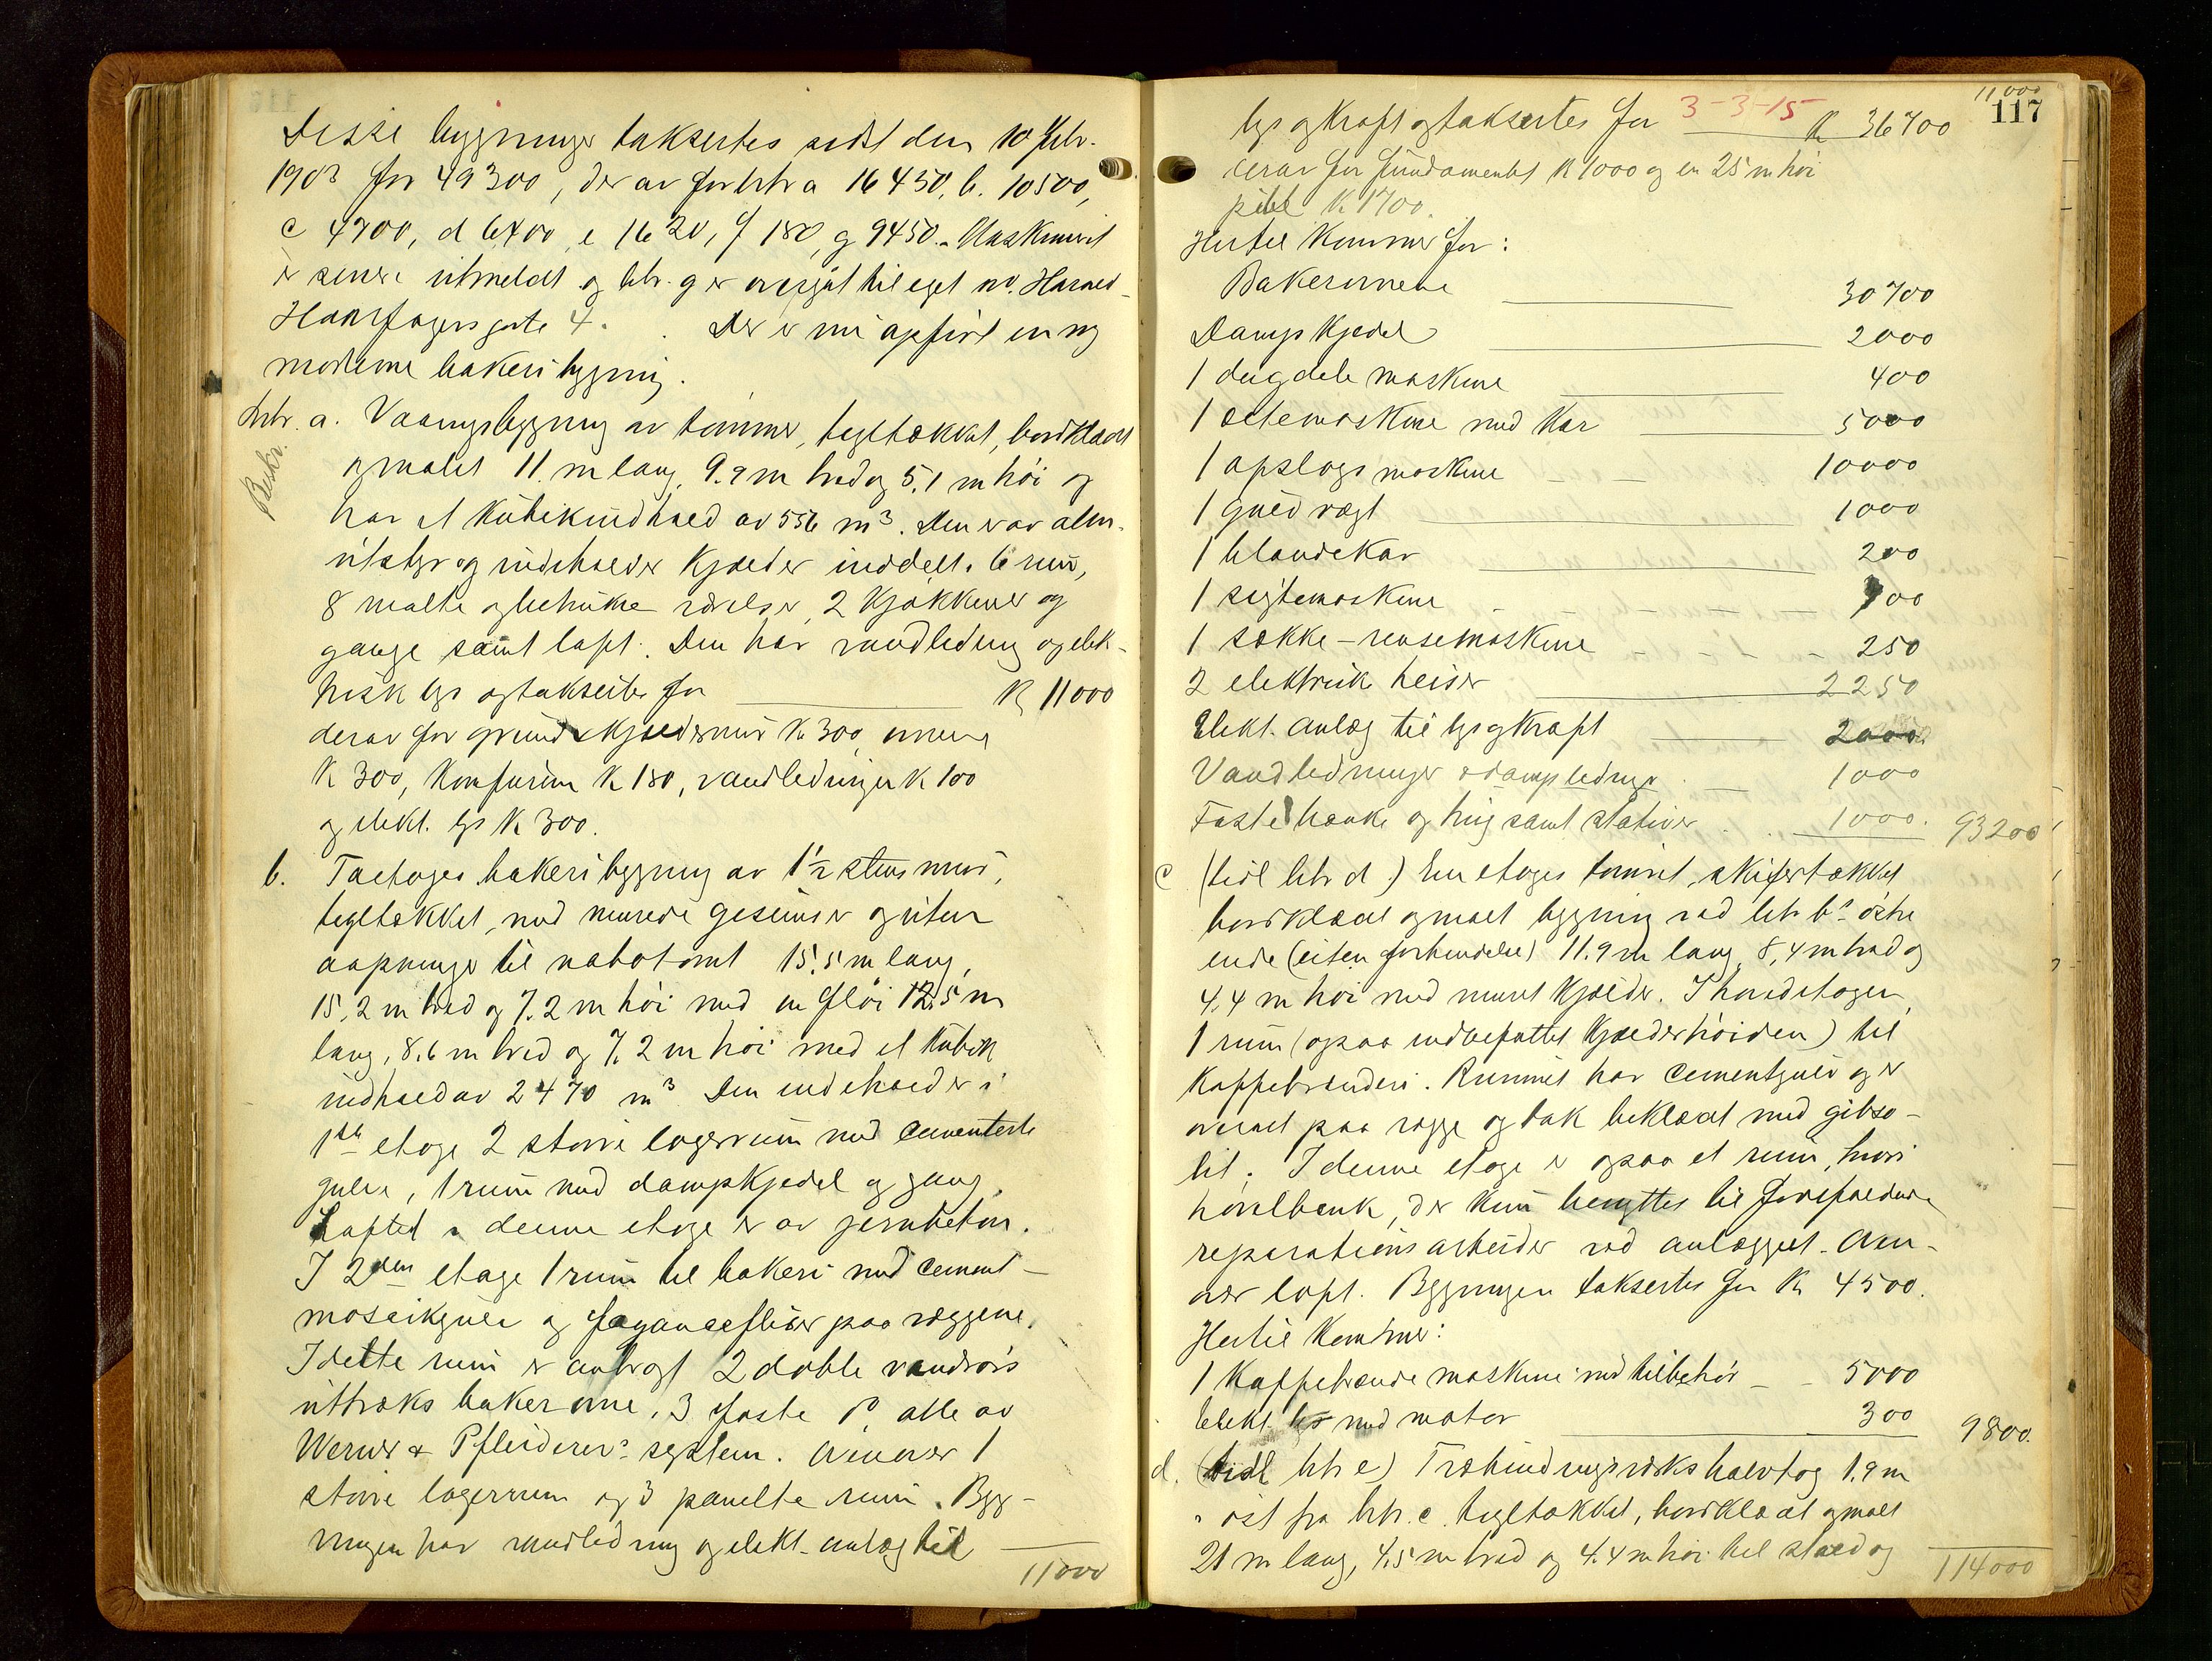 Disse bygninger taksertes sidst den 10 febr.
1903 for 49300, derav for litr a 16450, b. 10500,
c 4700, d 6400, e 1620, f 180, g 9450. Maskineriet
er senere utmeldt og litr. g er overgåt til eget nr. Harald
Haarfagers gate 4. Der er nu opført en ny
moderne bakeribygning.
Beskr.
Litr. a. Vaaningsbygning av tømmer, tegltækket, bordklædt
og malet 11. m lang, 9.9 m bred og 5.1 m høi og
har et kubikindhold av 556 m³. Den er av alm.
utstyr og indeholder kjælder inddelt i 6 rum,
8 malte og betrukne værelser, 2 kjøkkener og
gange samt loft. Den har vandledning og elek-
trisk lys og taksertes for K 11000
derav for grund & kjældermur K 300, ovnene
K 300, komfurerne K 180, vandledninger K 100
og elekt. lys K 300.
b. Toetages bakeribygning av 1½ stens mur,
tegltækket, med murede gesimser og uten
aapninger til nabotomt 15.5 m lang,
15.2 m bred og 7.2 m høi med en fløi 12.5 m
lang, 8.6 m bred og 7.2 m høi med et kubik
indhold av 2470 m³. Den indeholder i
1ste etage 2 større lagerrum med cementerte
gulve, 1 rum med dampkjedel og gang.
Loftet i denne etage er av jernbeton.
I 2den etage 1 rum til bakeri med cement-
mosaikgulv og fayancefliser paa væggene.
I dette rum er anbragt 2 doble vandrørs
uttræks bakerovne, 3 faste Do alle av
Werner & Pfleiderers system. Ovenover 1
større lagerrum og 3 panelte rum. Byg-
ningen har vandledning og elekt. anlæg til
11000
11000
117
lys og kraft og taksertes for 3-3-15 K 36700
derav for fundamentet K 1000 og en 25 m høi
pibe K 1700.
Hertil kommer for:
Bakerovnene 30700
Dampkjedel 2000
1 deigdele maskine 400
1 æltemaskine med kar 5000
1 opslags maskine 10000
1 gulvvægt 1000
1 blandekar 200
1 sigtemaskine 700
1 sække-rensemaskine 250
2 elektriske heiser 2250
Elekt. anlæg til lys og kraft 2000
Vandledninger & dampledninger 1000
Faste bænke og trug samt stativer 1000. 93200
c (tidl litr d) En etages tømret, skifertækket
bordklædt og malt bygning ved litr b's østre
ende (uten forbindelse) 11.9 m lang, 8,4 m bred og
4,4 m høi med muret kjælder. I hovedetagen
1 rum (ogsaa indbefattet kjælderhøiden) til
kaffebrænderi. Rummet har cementgulv og er
overalt paa vægge og tak beklædt med gibso-
lit. I denne etage er ogsaa et rum, hvori
høvlbænk, der kun benyttes til forefaldende
reparationsarbeider ved anlægget. Oven-
over loft. Bygningen taksertes for K 4500.
Hertil kommer:
1 kaffebrænde maskine med tilbehør 5000
elekt. lys med motor 300 9800.
d. (tidl litr e) Træbindingsverks halvtag 1.9 m
øst fra litr. c. tegltækket, bordklædt og malt
21 m lang, 4,5 m bred og 4.4 m høi til stald og
114000